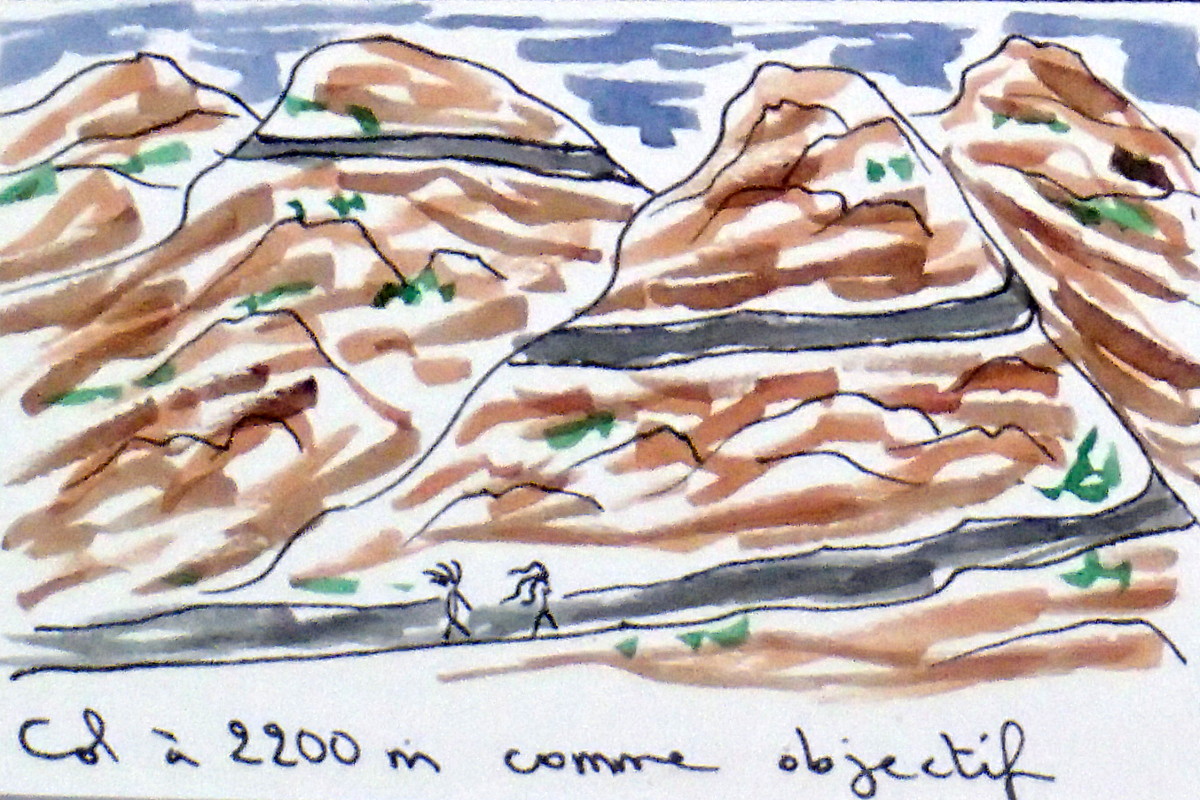 Col à 2200 m comme objectif